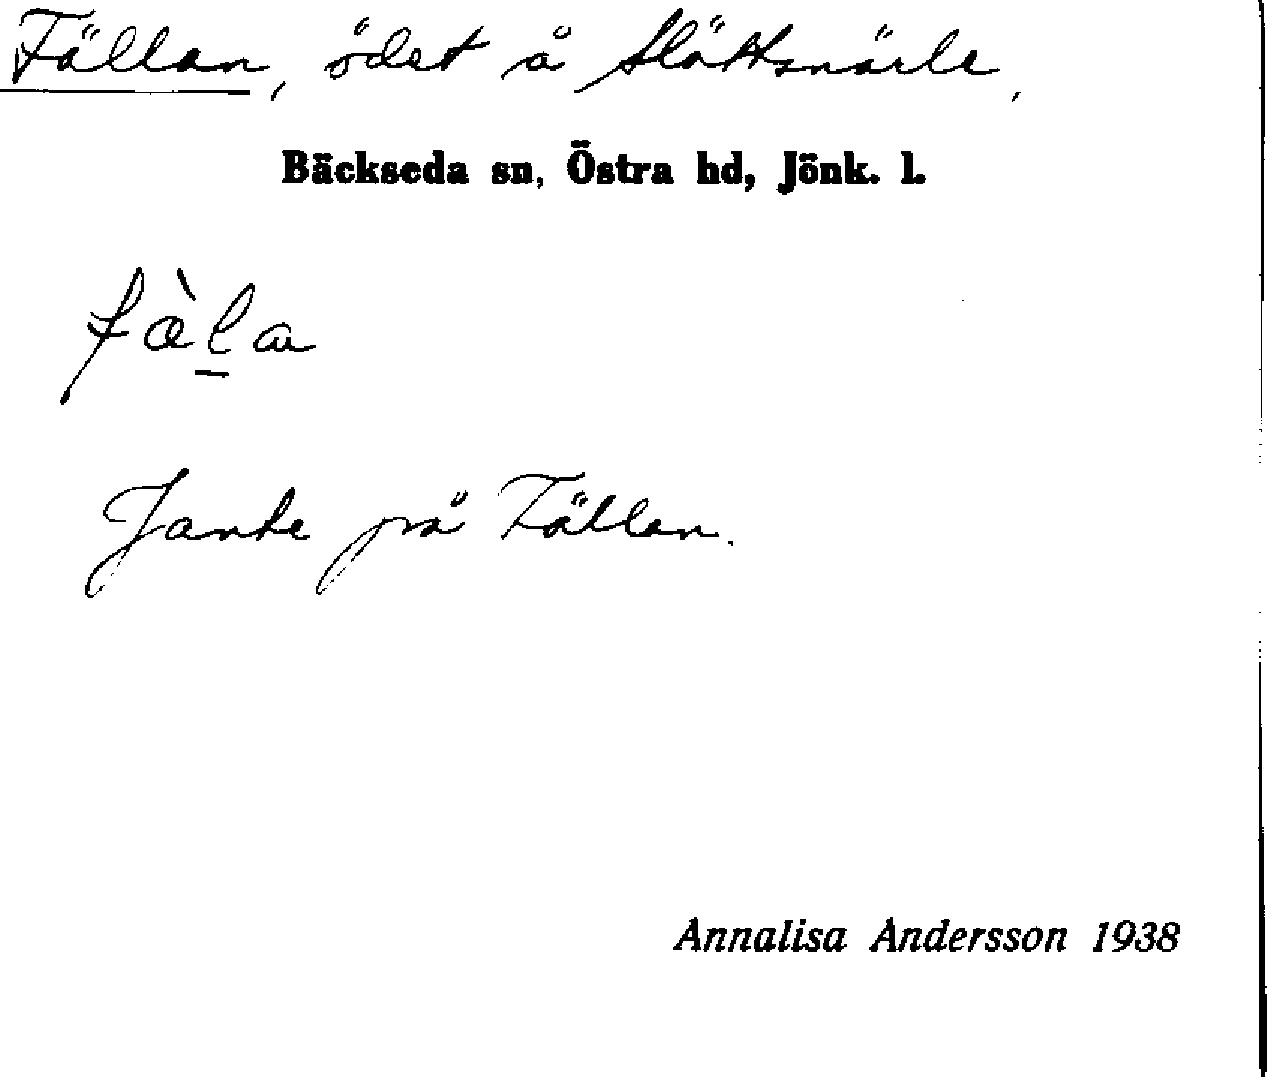 Fällan, ödet å Slättsnärle,
Bäckseda sn, Östra hd, Jönk. l.
fæ̀l̲a
Janke på Fällan.
Annalisa Andersson 1938